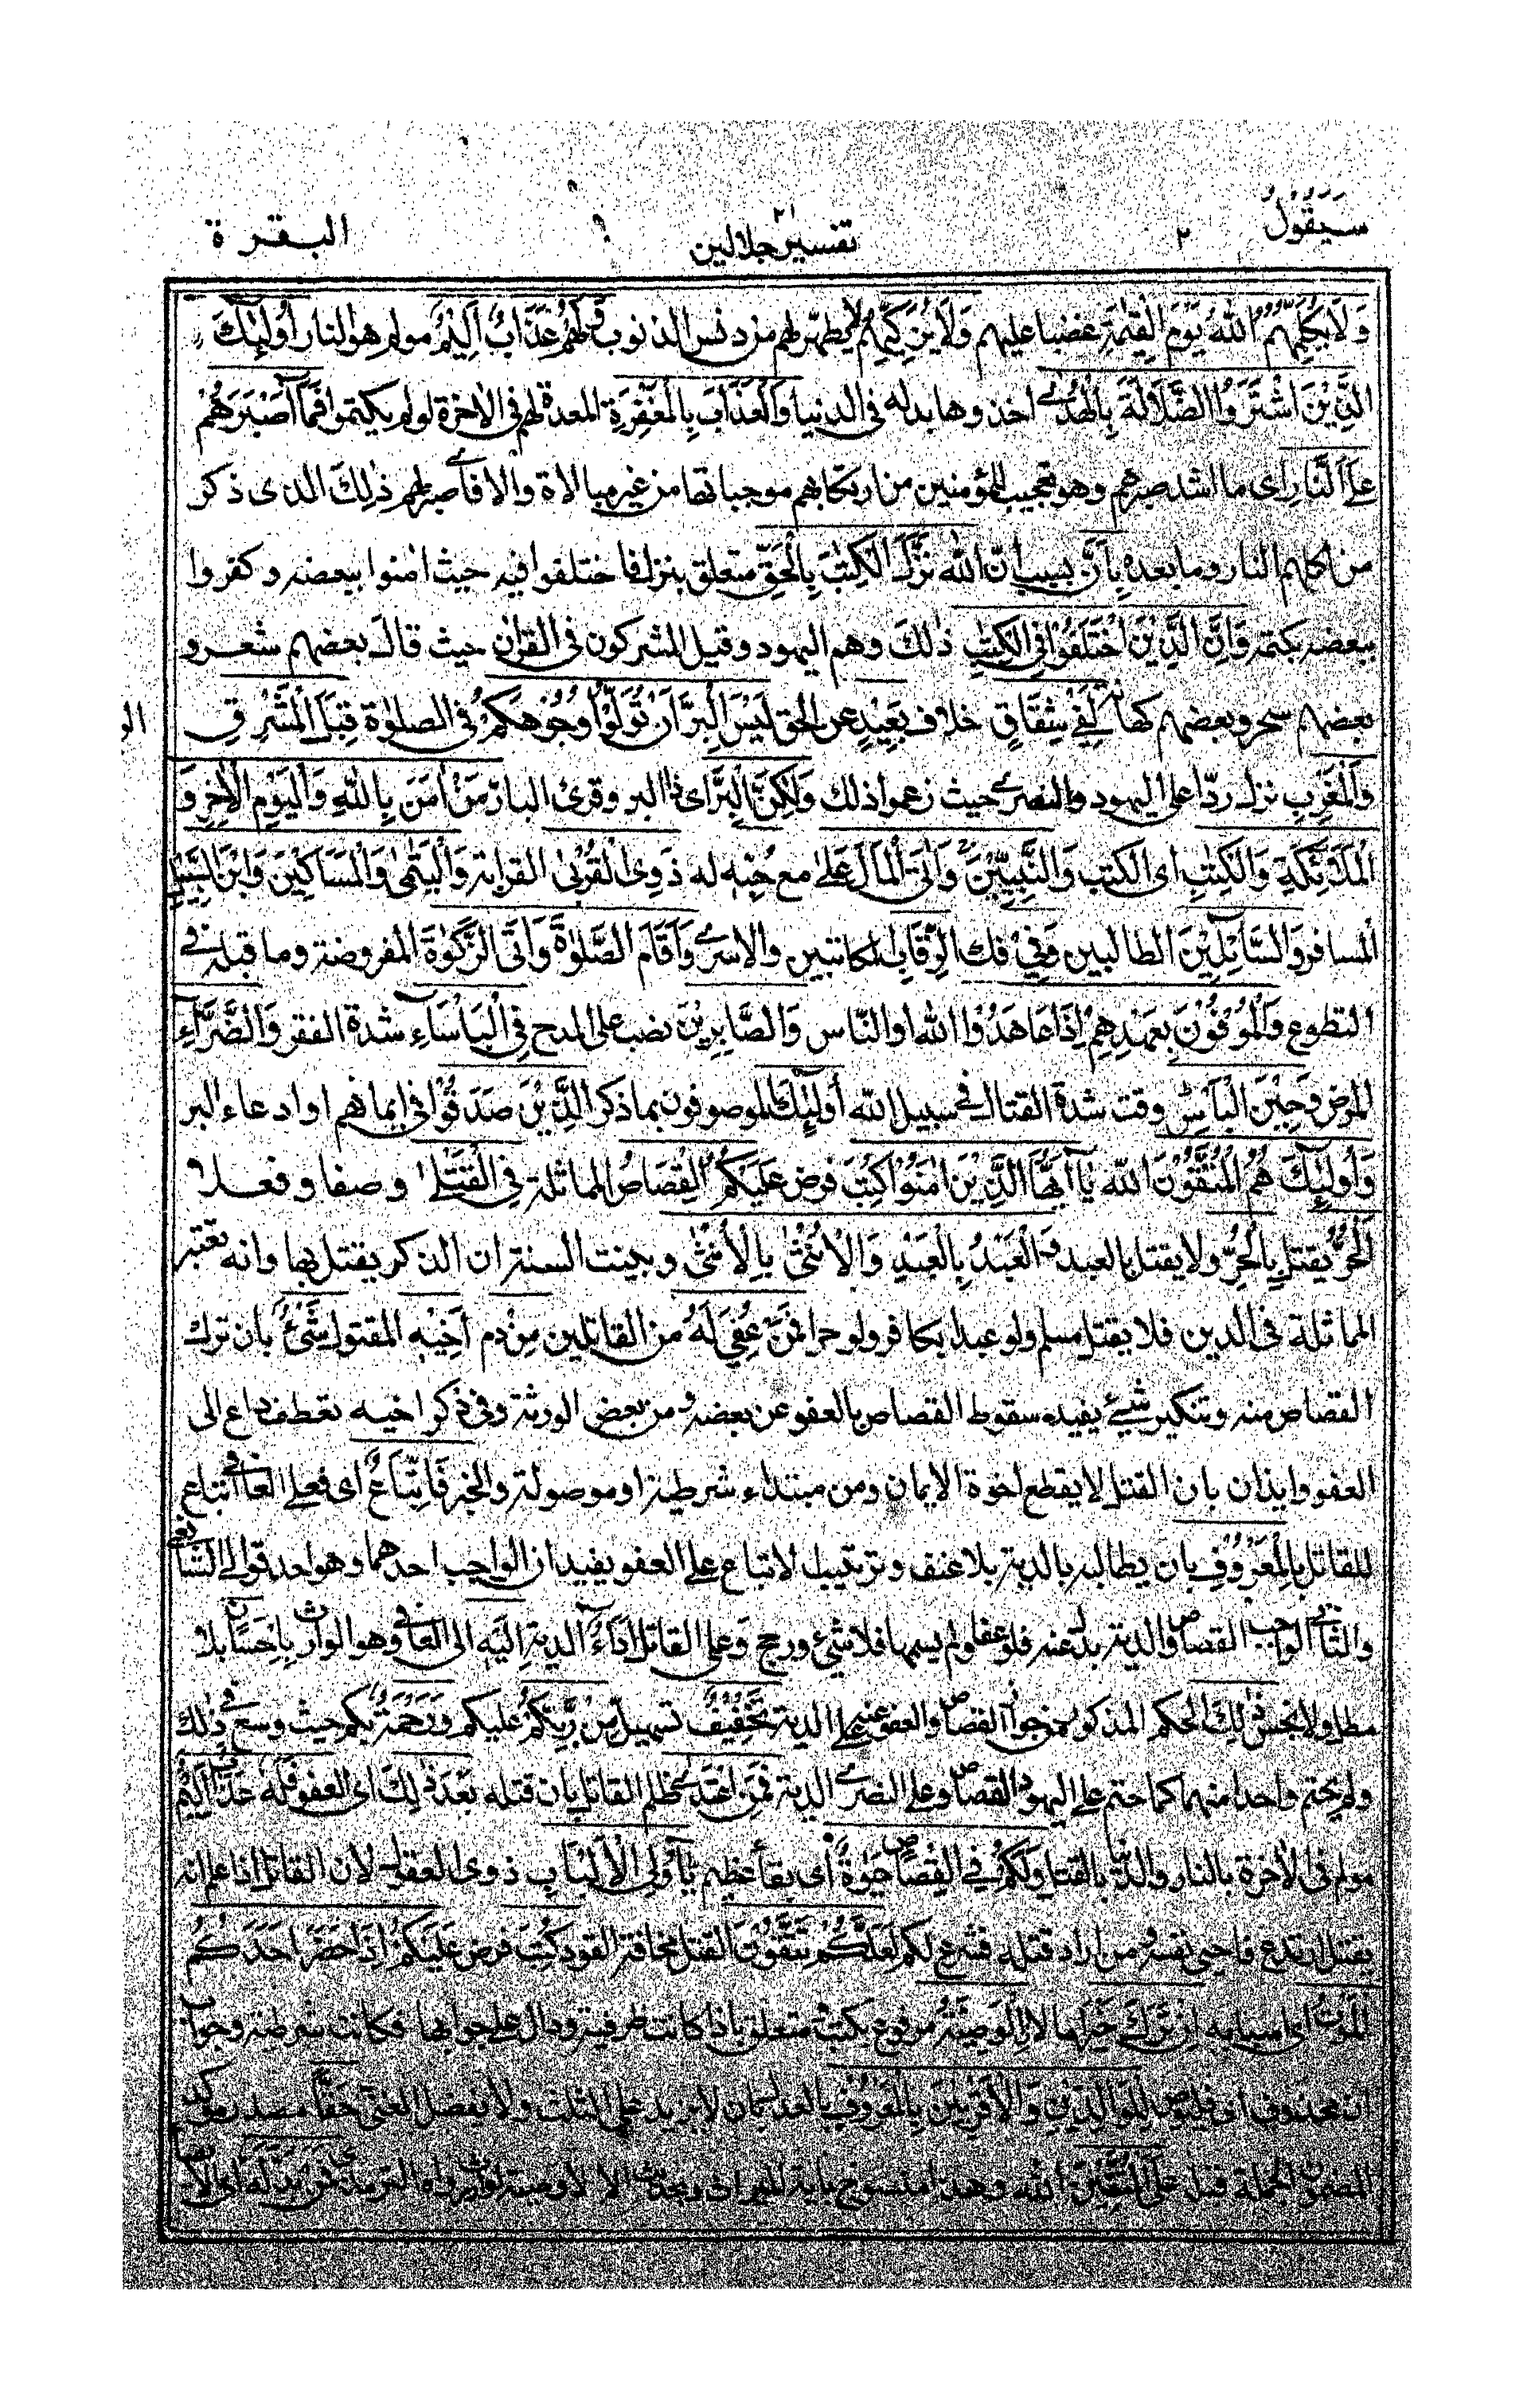 سَيَقُوْلُ ٢
تفسير جلالين
٢١
البقرة
وَلَا يُكَلِّمُهُمُ اللّٰهُ يَوْمَ الْقِيٰمَةِ غضبا عليهم وَلَا يُزَكِّيْهِمْ يطهرهم من دنس الذنوب وَلَهُمْ عَذَابٌ اَلِيْمٌ مولم هو النار اُولٰٓئِكَ
الَّذِيْنَ اشْتَرَوُا الضَّلَالَةَ بِالْهُدٰى اخذوها بدله فى الدنيا وَالْعَذَابَ بِالْمَغْفِرَةِ المعدة لهم فى الاخرة لو لم يكتموا فَمَآ اَصْبَرَهُمْ
عَلَى النَّارِ اى ما اشد صبرهم وهو تعجيب للمؤمنين من ارتكابهم موجباتها من غير مبالاة والا فاى صبر لهم ذٰلِكَ الذى ذكر
من اكلهم النار وما بعده بِاَنَّ بسبب ان اللّٰهَ نَزَّلَ الْكِتٰبَ بِالْحَقِّ متعلق بنزل فاختلفوا فيه حيث امنوا ببعضه وكفروا
ببعضه بكتمه وَاِنَّ الَّذِيْنَ اخْتَلَفُوْا فِى الْكِتٰبِ ذٰلك وهم اليهود وقيل المشركون فى القران حيث قال بعضهم شعر و
بعضهم سحر وبعضهم كهانة لَفِيْ شِقَاقٍ خلاف بَعِيْدٍ عن الحق لَيْسَ الْبِرَّ اَنْ تُوَلُّوْا وُجُوْهَكُمْ فى الصلوة قِبَلَ الْمَشْرِقِ
وَالْمَغْرِبِ نزل ردا على اليهود والنصرى حيث زعموا ذلك وَلٰكِنَّ الْبِرَّ اى ذا البر وقرئ البار مَنْ اٰمَنَ بِاللّٰهِ وَالْيَوْمِ الْاٰخِرِ وَ
الْمَلٰٓئِكَةِ وَالْكِتٰبِ اى الكتب وَالنَّبِيّٖنَ وَاٰتَى الْمَالَ عَلٰى مع حُبِّهٖ له ذَوِى الْقُرْبٰى القرابة وَالْيَتٰمٰى وَالْمَسَاكِيْنَ وَابْنَ السَّبِيْلِ
المسافر وَالسَّآئِلِيْنَ الطالبين وَفِيْ فك الرِّقَابِ المكاتبين والاسرى وَاَقَامَ الصَّلٰوةَ وَاٰتَى الزَّكٰوةَ المفروضة وما قبله فى
التطوع وَالْمُوْفُوْنَ بِعَهْدِهِمْ اِذَا عَاهَدُوْا الله او الناس وَالصَّابِرِيْنَ نصب على المدح فِى الْبَاْسَآءِ شدة الفقر وَالضَّرَّآءِ
المرض وَحِيْنَ الْبَاْسِ وقت شدة القتال فى سبيل الله اُولٰٓئِكَ الموصوفون بما ذكر الَّذِيْنَ صَدَقُوْا فى ايمانهم او ادعاء البر
وَاُولٰٓئِكَ هُمُ الْمُتَّقُوْنَ الله يٰٓاَيُّهَا الَّذِيْنَ اٰمَنُوْا كُتِبَ فرض عَلَيْكُمُ الْقِصَاصُ المماثلة فِى الْقَتْلٰى وصفا وفعلا
اَلْحُرُّ يقتل بِالْحُرِّ ولا يقتل بالعبد وَالْعَبْدُ بِالْعَبْدِ وَالْاُنْثٰى بِالْاُنْثٰى وبينت السنة ان الذكر يقتل بها وانه تعتبر
المماثلة فى الدين فلا يقتل مسلم ولو عبدا بكافر ولو حرا فَمَنْ عُفِيَ لَهٗ من القاتلين مِنْ دم اَخِيْهِ المقتول شَيْءٌ بان ترك
القصاص منه وتنكير شيئ يفيد سقوط القصاص بالعفو عن بعضه ومن بعض الورثة وفى ذكر اخيه تعطف داع الى
العفو وايذان بان القتل لا يقطع اخوة الايمان ومن مبتداء شرطية او موصولة والخبر فَاتِّبَاعٌ اى فعلى العافى اتباع
للقاتل بِالْمَعْرُوْفِ بان يطالبه بالدية بلا عنف وترتيب الاتباع على العفو يفيد ان الواجب احدهما وهو احد قولى الشافعى
والثانى الواجب القصاص والدية بدل عنه فلو عفا ولم يسمها فلا شيئ ورجح وَعلى القاتل اَدَآءٌ الدية اِلَيْهِ الى العافى وهو الوارث بِاِحْسَانٍ بلا
مطل ولا بخس ذٰلِكَ الحكم المذكور من جواز القصاص والعفو عنه على الدية تَخْفِيْفٌ تسهيل مِّنْ رَّبِّكُمْ عليكم وَرَحْمَةٌ بكم حيث وسع فى ذلك
ولم يحتم واحدا منهما كما حتم على اليهود القصاص وعلى النصرى الدية فَمَنِ اعْتَدٰى ظلم القاتل بان قتله بَعْدَ ذٰلِكَ اى العفو فَلَهٗ عَذَابٌ اَلِيْمٌ
مولم فى الاخرة بالنار والدنيا بالقتل وَلَكُمْ فِى الْقِصَاصِ حَيٰوةٌ اى بقاء عظيم يٰٓاُولِى الْاَلْبَابِ ذوى العقول لان القاتل اذا علم انه
يقتل ارتدع فاحيى نفسه ومن اراد قتله فشرع لكم لَعَلَّكُمْ تَتَّقُوْنَ القتل مخافة القود كُتِبَ فرض عَلَيْكُمْ اِذَا حَضَرَ اَحَدَكُمُ
الْمَوْتُ اى اسبابه اِنْ تَرَكَ خَيْرًا مالا اۨلْوَصِيَّةُ مرفوع بكتب متعلق باذا كانت ظرفية ودال على جوابها ان كانت شرطية وجواب
ان محذوف اى فليوص لِلْوَالِدَيْنِ وَالْاَقْرَبِيْنَ بِالْمَعْرُوْفِ بالعدل بان لا يزيد على الثلث ولا يفضل الغنى حَقًّا مصدر موكد
لمضمون الجملة قبله عَلَى الْمُتَّقِيْنَ الله وهذا منسوخ باية الميراث وبحديث الا لا وصية لوارث رواه الترمذى فَمَنْ بَدَّلَهٗ اى الا